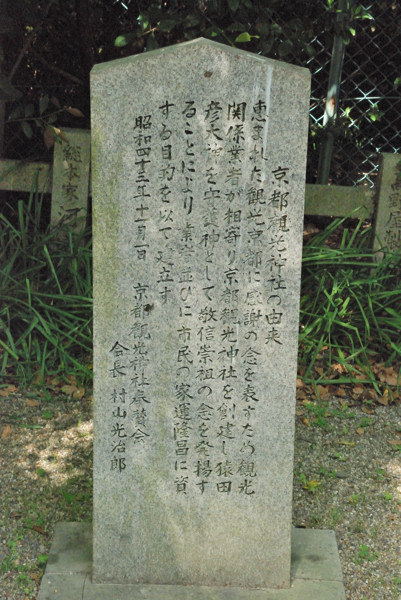 京都観光神社の由来
恵まれた観光京都に感謝の念を表すため観光
関係業者が相寄り京都観光神社を創建し猿田
彦大神を守護神として敬信崇祖の念を発揚す
ることにより業者並びに市民の家運隆昌に資
する目的を以て建立す
昭和四十三年十一月一日 京都観光神社奉賛会
会長 村山光治郎